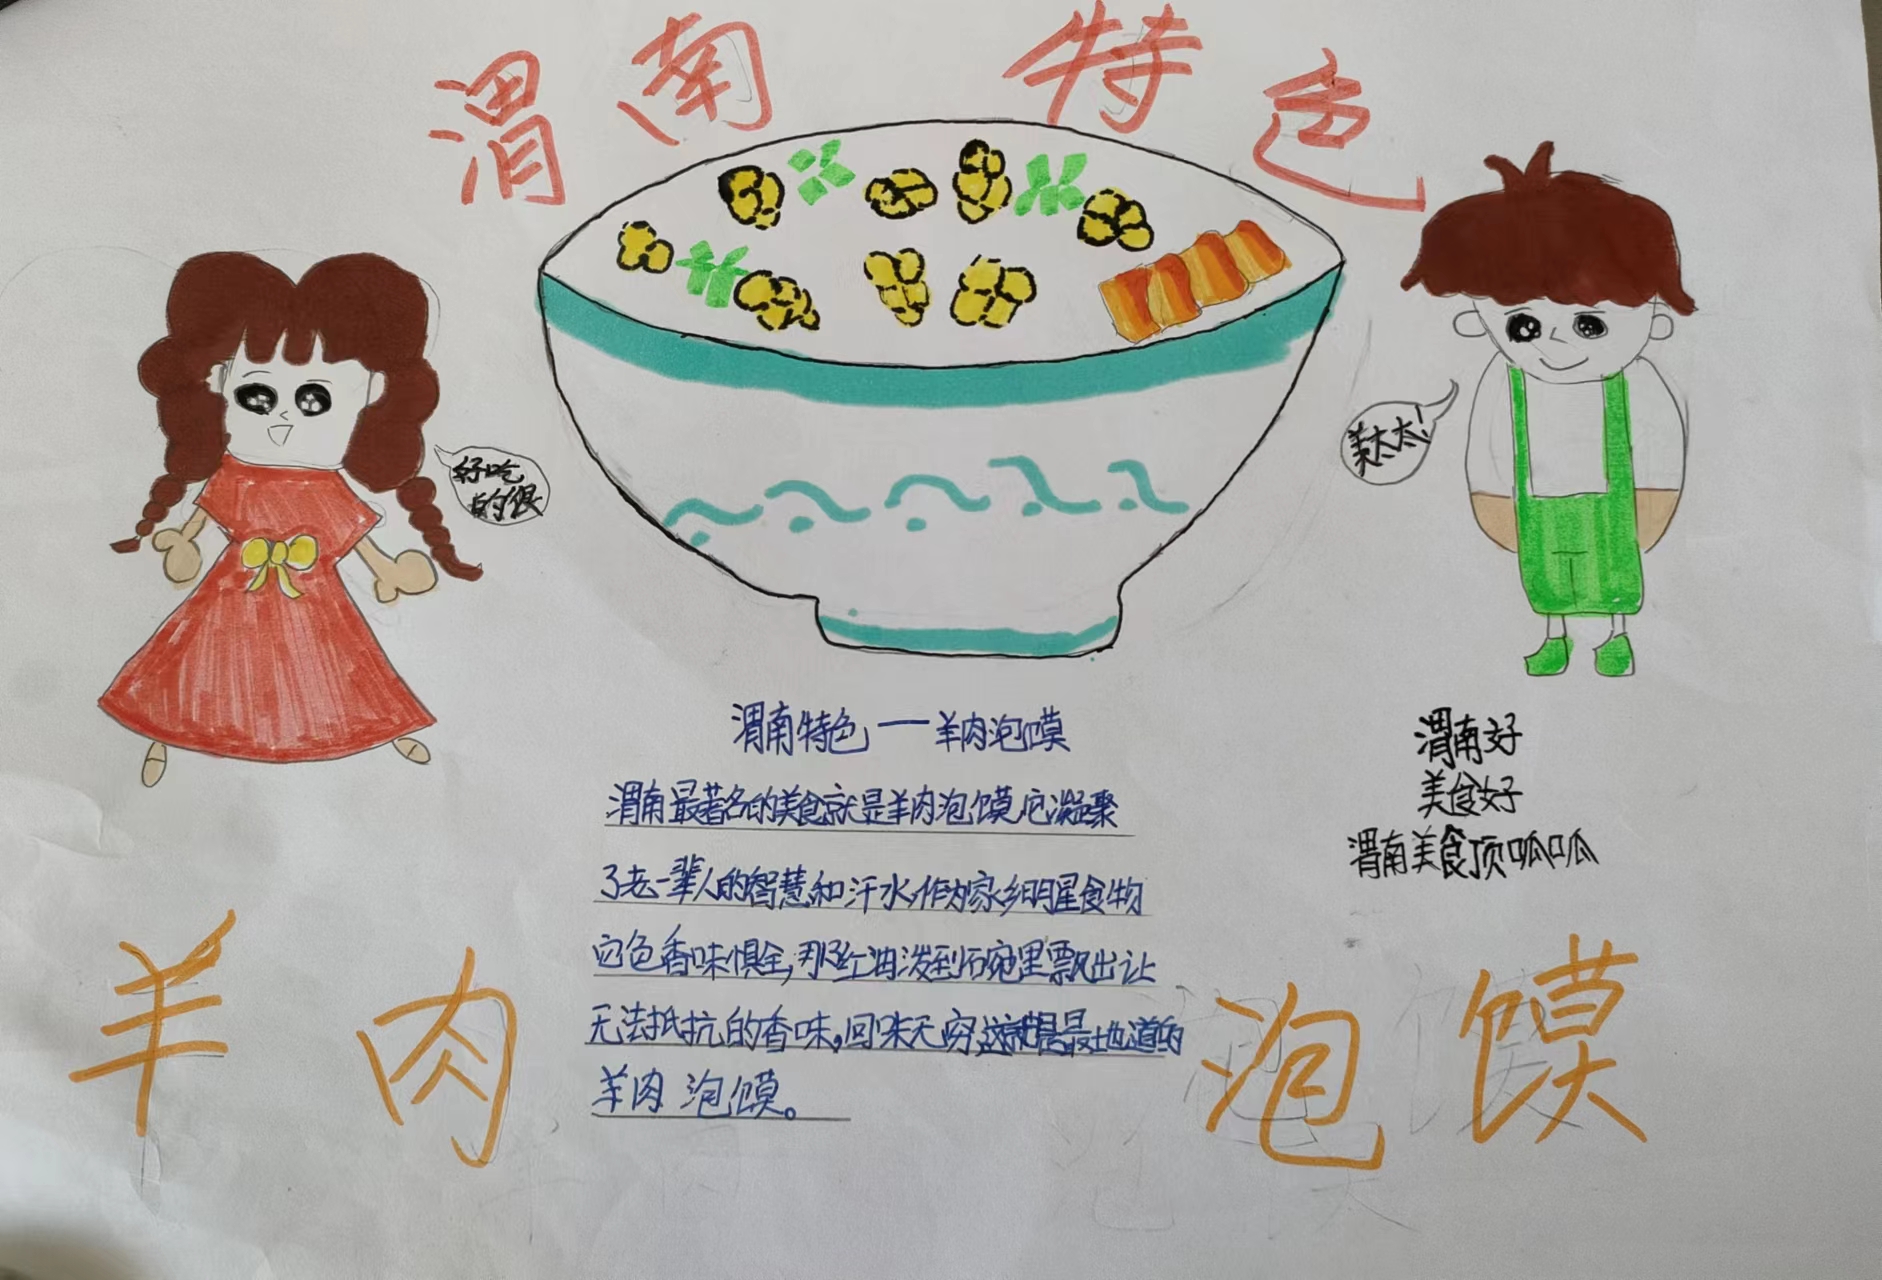 渭南特色
好吃
的很
美太太!
渭南特色——羊肉泡馍
渭南最著名的美食就是羊肉泡馍,它凝聚
了老一辈人的智慧和汗水,作为家乡明星食物
它色香味惧全,那红油泼到碗里飘出让
无法抵抗的香味,回味无穷,这就是最地道的
羊肉泡馍。
渭南好
美食好
渭南美食顶呱呱
羊肉泡馍